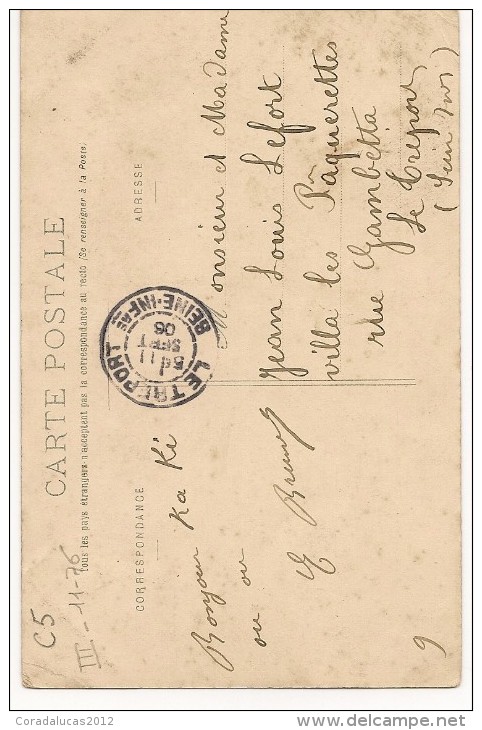 CARTE POSTALE
Tous les pays étrangers n'acceptent pas la correspondance au recto (Se renseigner à la Poste.
CORRESPONDANCE
ADRESSE
Bonjour Ka Ki
ou
ou
E
9
Monsieur et Madame
Jean Louis Lefort
villa les Pâquerettes
rue Gambetta
Le Tréport
(Sein Infs)
LE TREPORT
5E 11
SEPT
06
SEINE-INFRE
C5
III - 11-76
Coradalucas2012
delcampe.net